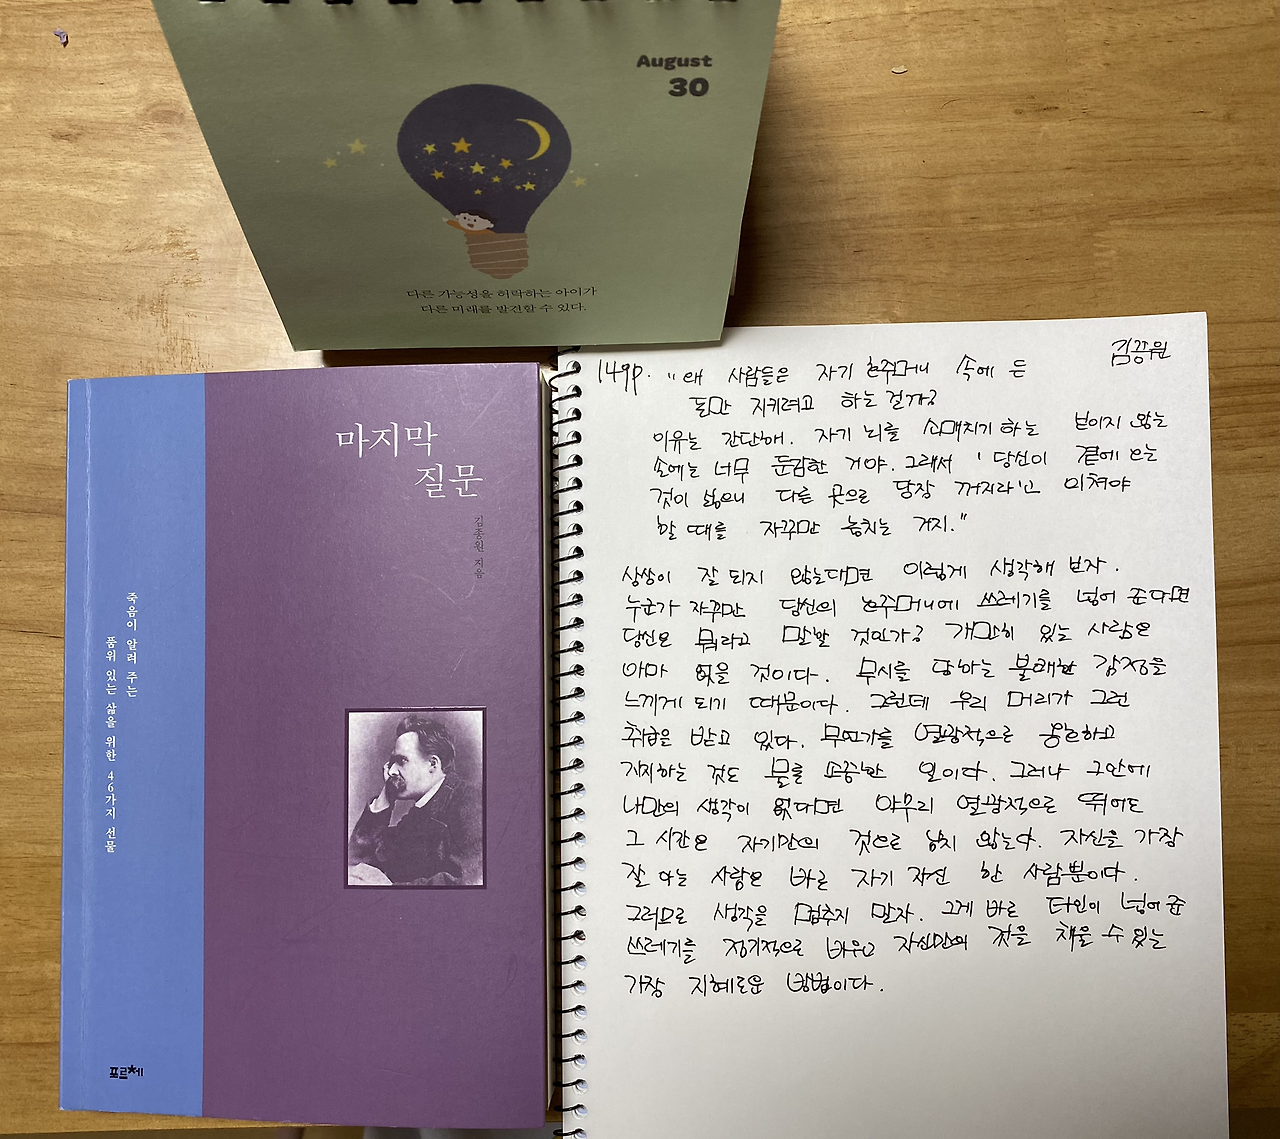 August
30
다른 가능성을 허락하는 아이가
다른 미래를 발견할 수 있다.
마지막
질문
김종원 지음
죽음이 알려 주는
품위 있는 삶을 위한 46가지 선물
포르체
김종원
149p. "왜 사람들은 자기 호주머니 속에 든
돈만 지키려고 하는 걸까?
이유는 간단해. 자기 뇌를 소매치기 하는 보이지 않는
손에는 너무 둔감한 거야. 그래서 '당신이 곁에 오는
것이 싫으니 다른 곳으로 당장 꺼지라'고 미쳐야
할 때를 자꾸만 놓치는 거지."
상상이 잘 되지 않는다면 이렇게 생각해 보자.
누군가 자꾸만 당신의 호주머니에 쓰레기를 넣어 준다면
당신은 뭐라고 말할 것인가? 가만히 있는 사람은
아마 없을 것이다. 무시를 당하는 불쾌한 감정을
느끼게 되기 때문이다. 그런데 우리 머리가 그런
취급을 받고 있다. 무언가를 열광적으로 응원하고
지지하는 것도 물론 소중한 일이다. 그러나 그안에
나만의 생각이 없다면 아무리 열광적으로 뛰어도
그 시간은 자기만의 것으로 남지 않는다. 자신을 가장
잘 아는 사람은 바로 자기 자신 한 사람뿐이다.
그러므로 생각을 멈추지 말자. 그게 바로 타인이 넣어 준
쓰레기를 정기적으로 비우고 자신만의 것을 채울 수 있는
가장 지혜로운 방법이다.